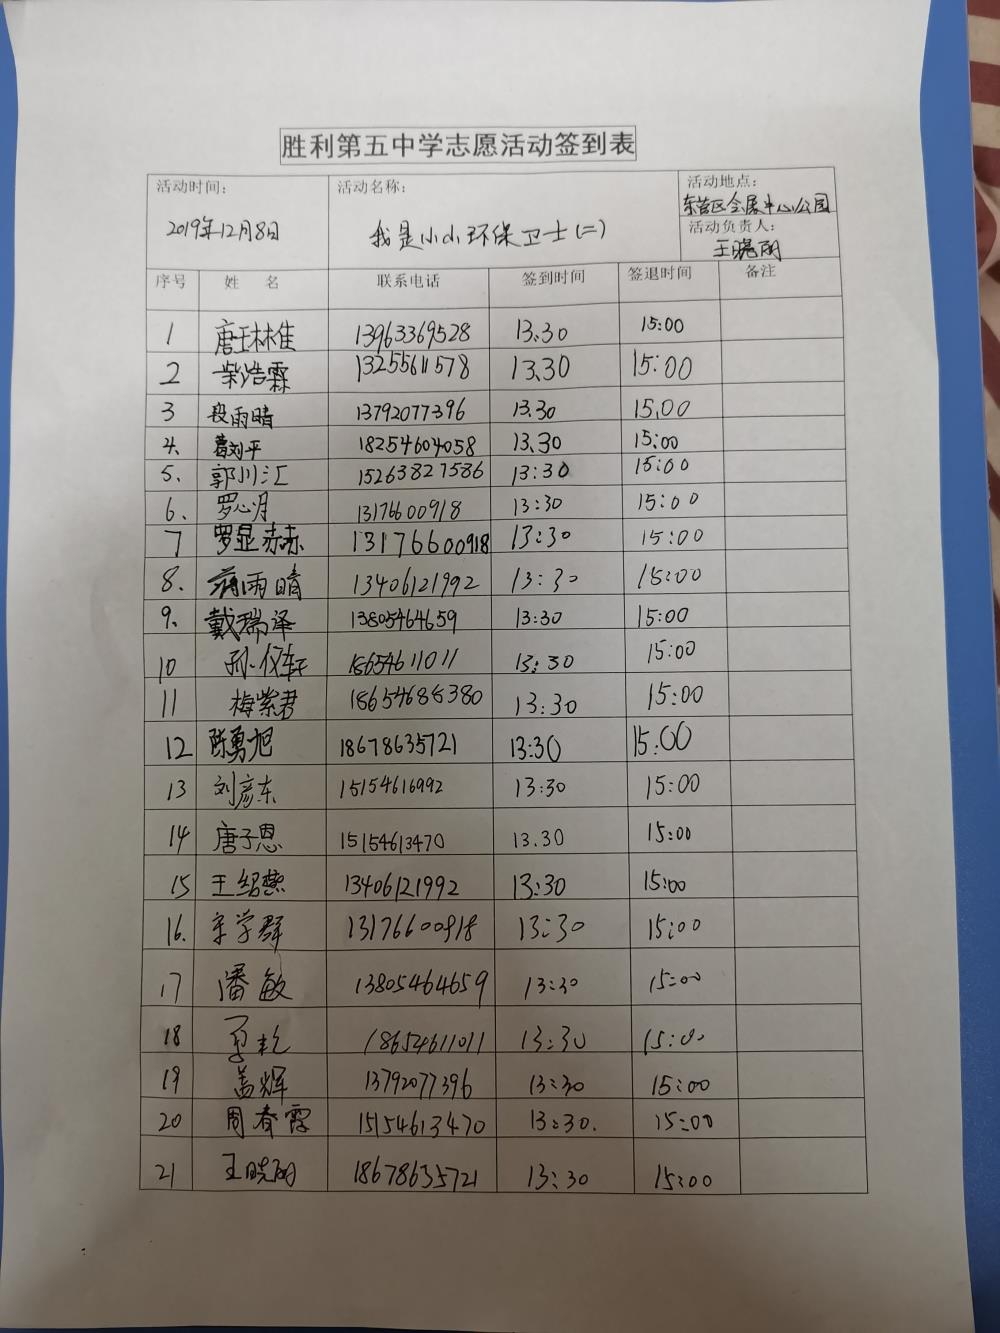 胜利第五中学志愿活动签到表
活动时间: 活动名称: 活动地点:
2019年12月8日 我是小小环保卫士(二) 东营区会展中心公园
活动负责人:
王晓丽
序号 姓 名 联系电话 签到时间 签退时间 备注
1 唐王林佳 13963369528 13.30 15:00
2 柴浩霖 13255611578 13.30 15:00
3 段雨晴 13792077396 13.30 15.00
4. 葛刘平 18254604058 13.30 15:00
5. 郭川汇 15263827586 13:30 15:00
6. 罗心月 13176600918 13:30 15:00
7 罗显赫 13176600918 13:30 15:00
8. 雨晴 13406121992 13:30 15:00
9. 戴瑞泽 13805464659 13:30 15:00
10 孙仪轩 18654611011 13:30 15:00
11 梅紫君 18654688380 13:30 15:00
12 陈勇旭 18678635721 13:30 15:00
13 刘彦东 15154616992 13:30 15:00
14 唐子恩 15154613470 13.30 15:00
15 王绍燕 13406121992 13:30 15:00
16. 宋学群 13176600918 13:30 15:00
17 潘敏 13805464659 13:30 15:00
18 18654611011 13:30 15:00
19 盖辉 13792077396 13:30 15:00
20 周春霞 15154613470 13:30. 15:00
21 王晓丽 18678635721 13:30 15:00